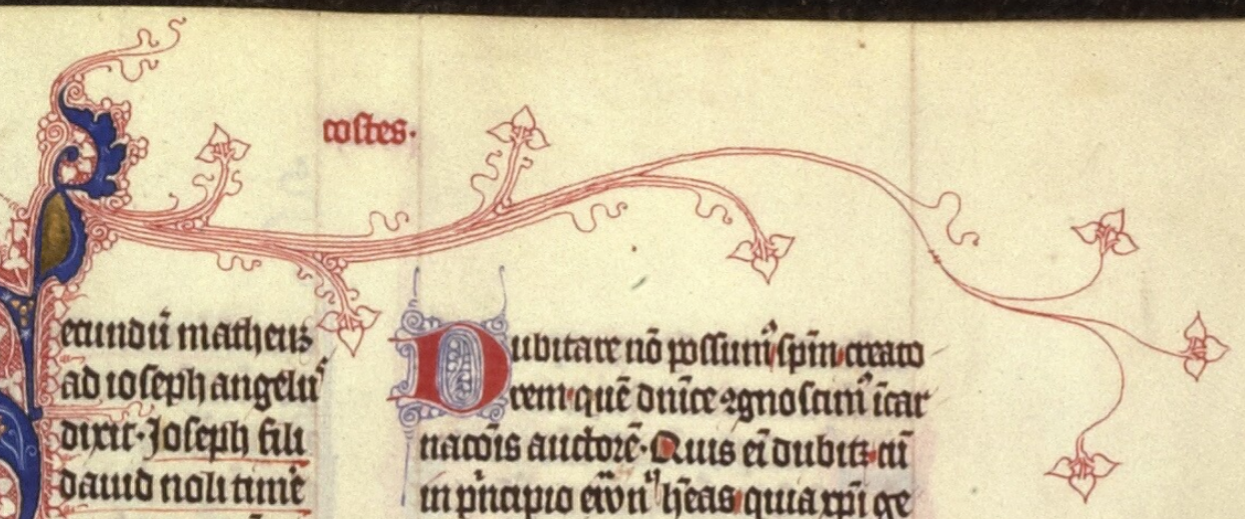 costes.
ecundū matheuʒ
ad ioseph angelus
dixit. Joseph fili
dauid noli time
Dubitare nō possumꝰ spīn creato
rem quē dnīce ꝯgnoscimꝰ īcar
nacōis auctorē. Quis eī dubitꝫ cū
in pͥncipio hēas quia xpī ge